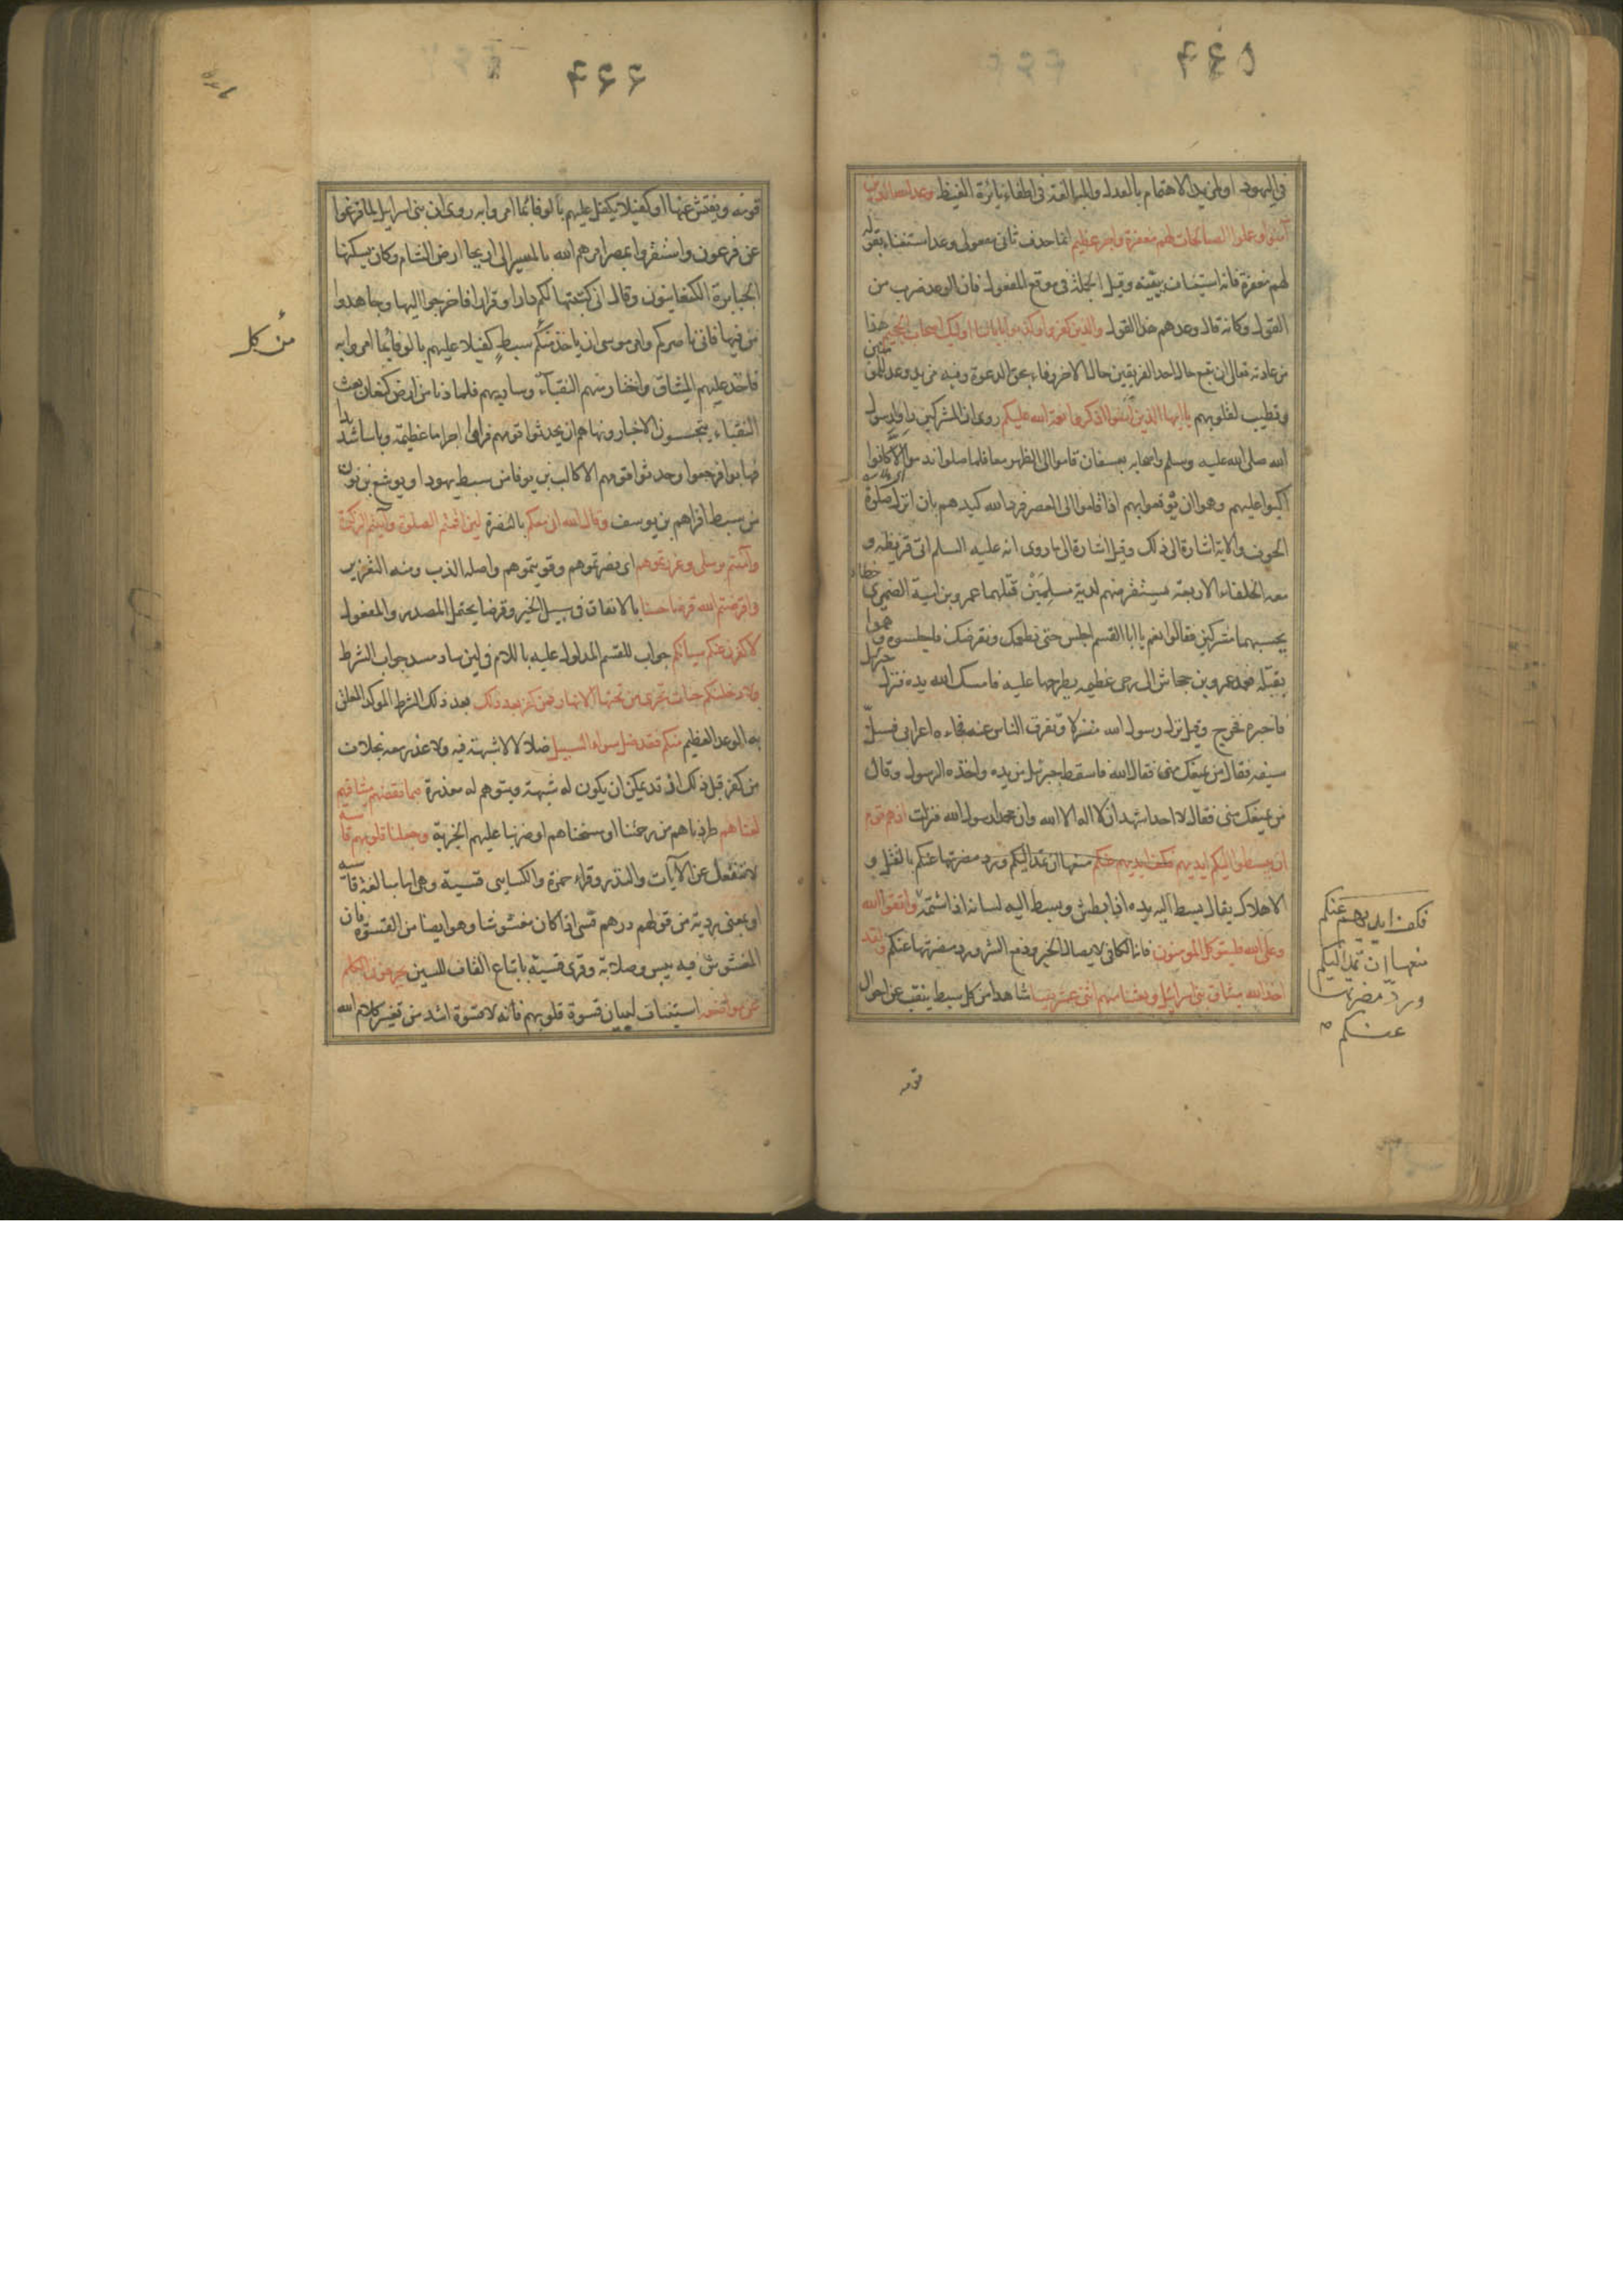 ٤٤٥
في اليهود او لمزيد الاهتمام بالعدل والمبالغة في اطفاء نائرة الغيظ وعد الله الذين
آمنوا وعملوا الصالحات لهم مغفرة واجر عظيم انما حذف ثاني مفعولي وعد استغناء بقوله
لهم مغفرة فانه استيناف يبينه وقيل الجملة في موقع المفعول فان الوعد ضرب من
القول وكانه قال وعدهم هذا القول والذين كفروا وكذبوا باياتنا اوليك اصحاب الجحيم هذا
من عادته تعالى ان يتبع حال احد الفريقين حال الاخر وفاء بحق الدعوة وفيه مزيد وعد للمؤمنين
وتطييب لقلوبهم يا ايها الذين آمنوا اذكروا نعمة الله عليكم روى ان المشركين راوا رسول
الله صلى الله عليه وسلم واصحابه بعسفان قاموا الى الظهر معا فلما صلوا ندموا الا كانوا
اكبوا عليهم وهموا ان يوقعوا بهم اذا قاموا الى العصر فرد الله كيدهم بان انزل صلوة
الخوف والاية اشارة الى ذلك وقيل اشارة الى ما روى انه عليه السلم اتى قريظة و
معه الخلفاء الاربعة يستقرضهم لدية مسلمين قتلهما عمرو بن امية الضمري خطا
يحسبهما مشركين فقالوا نعم يا ابا القسم اجلس حتى نطعمك ونقرضك فاجلسوه وهموا
بقتله فعمد عمرو بن جحاش الى رحى عظيمة يطرحها عليه فامسك الله يده فنزل جبرئيل
فاخبره فخرج وقيل نزل رسول الله منزلا وتفرق الناس عنه فجاءه اعرابي فسل
سيفه فقال من يمنعك مني فقال الله فاسقطه جبرئيل من يده واخذه الرسول وقال
من يمنعك مني فقال لا احد اشهد ان لا اله الا الله وان محمدا رسول الله فنزلت اذ هم قوم
ان يبسطوا اليكم ايديهم فكف ايديهم عنكم منعها ان تمد اليكم ورد مضرتها عنكم بالقتل و
الاهلاك يقال بسط اليه يده اذا بطش وبسط اليه لسانه اذا شتمه واتقوا الله
وعلى الله فليتوكل المومنون فانه الكافي لايصال الخير ودفع الشر ورد مضرتها عنكم ولقد
اخذ الله ميثاق بني اسرائيل وبعثنا منهم اثني عشر نقيبا شاهدا من كل سبط ينقب عن احوال
فكف ايديهم عنكم
منعها ان تمد اليكم
ورد مضرتها
عنكم
قومه
٤٤٦
قومه ويفتش عنها او كفيلا يكفل عليهم بالوفا بما امروا به روى ان بني اسرايل لما فرغوا
عن فرعون واستقروا بمصر امرهم الله بالمسير الى اريحا ارض الشام وكان يسكنها
الجبابرة الكنعانيون وقال اني كتبتها لكم دارا وقرارا فاخرجوا اليها وجاهدوا
من فيها فاني ناصركم وامر موسى ان ياخذ منكم سبط كفيلا عليهم بالوفا بما امروا به
فاخذ عليهم الميثاق واختار منهم النقباء وسار بهم فلما دنا من ارض كنعان بعث
النقباء يتجسسون الاخبار ونهاهم ان يحدثوا قومهم فراوا اجراما عظيمة وباسا شديدا
فهابوا فرجعوا وحدثوا قومهم الا كالب بن يوفنا من سبط يهودا ويوشع بن نون
من سبط افراهم بن يوسف وقال الله اني معكم بالنصرة لئن اقمتم الصلوة وآتيتم الزكوة
وآمنتم برسلي وعزرتموهم اي نصرتموهم وقويتموهم واصله الذب ومنه التعزير
واقرضتم الله قرضا حسنا بالانفاق في سبيل الخير وقرضا يحتمل المصدر والمفعول
لاكفرن عنكم سياتكم جواب للقسم المدلول عليه باللام في لئن ساد مسد جواب الشرط
ولادخلنكم جنات تجري من تحتها الانهار فمن كفر بعد ذلك بعد ذلك الشرط الموكد المعلق
به الوعد العظيم منكم فقد ضل سواء السبيل ضلالا لا شبهة فيه ولا عذر معه بخلاف
من كفر قبل ذلك اذ قد يمكن ان يكون له شبهة ويتوهم له معذرة فبما نقضهم ميثاقهم
لعناهم طردناهم من رحمتنا او مسخناهم او ضربنا عليهم الجزية وجعلنا قلوبهم قاسية
لا تنفعل عن الآيات والنذر وقراء حمزة والكساى قسية وهي اما مبالغة قاسية
او بمعنى ردية من قولهم درهم قسي اذا كان مغشوشا وهو ايضا من القسوة فان
المغشوش فيه يبس وصلابة وقرى قسية باتباع القاف للسين يحرفون الكلم
عن مواضعه استيناف لبيان قسوة قلوبهم فانه لا قسوة اشد من تغيير كلام الله
من كل